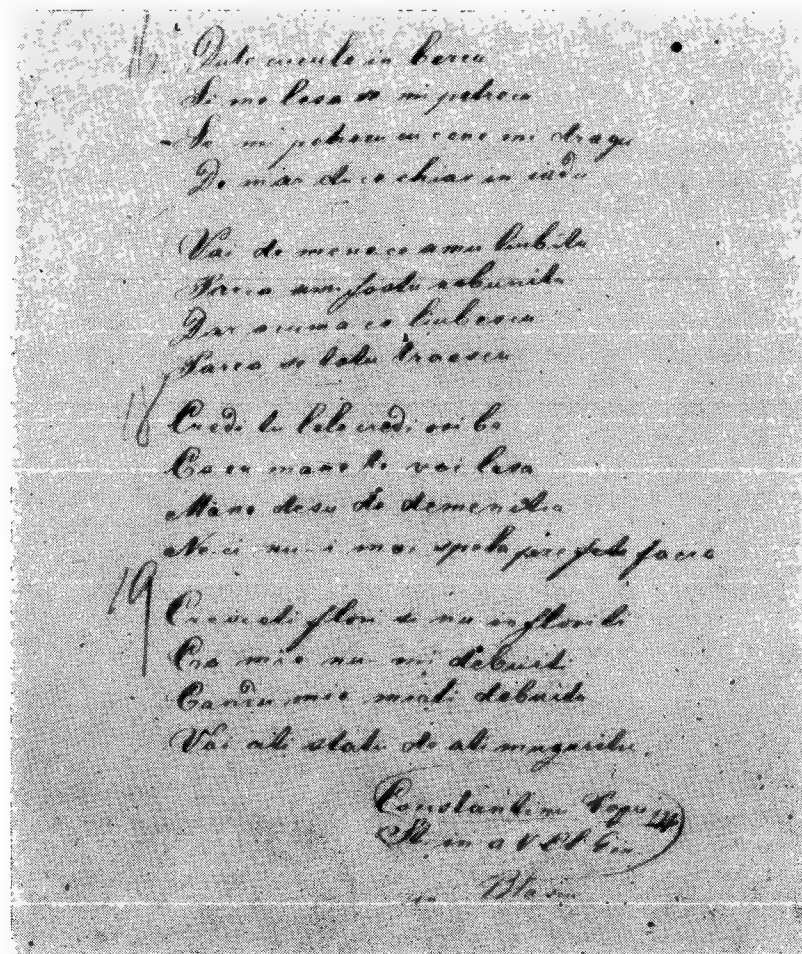 17.
Dute
Si me lasa se mi petrecu
Se mi petrecu cu cene mi dragu
De miar duce chiar in iadu
Vai de mene ce amu liubitu
Parca am fostu nebunitu
Dar acuma ce liubescu
Parca se totu traescu
18
Credi tu lele credi ori ba
Ca eu mane te voi lasa
Mane desu de demenitia
Neci nu-i mai spela pre fatia
19
Cresceti flori si nu infloriti
Ca mie nu mi debuiti
Candu mie miati debuitu
Voi ati statu de ati
Constantinu Pop
St. in a V. Cl. Gin
Blasiu